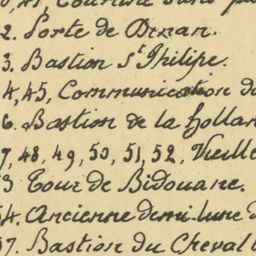 0, 41, Courtine
2. Porte de Dinan.
3. Bastion St Philipe.
4, 45, Communication d
6. Bastion de la hollan
7, 48, 49, 50, 51, 52. Vieille
3 Tour de Bidouane.
54. Ancienne demi-lune d
7. Bastion du Cheval